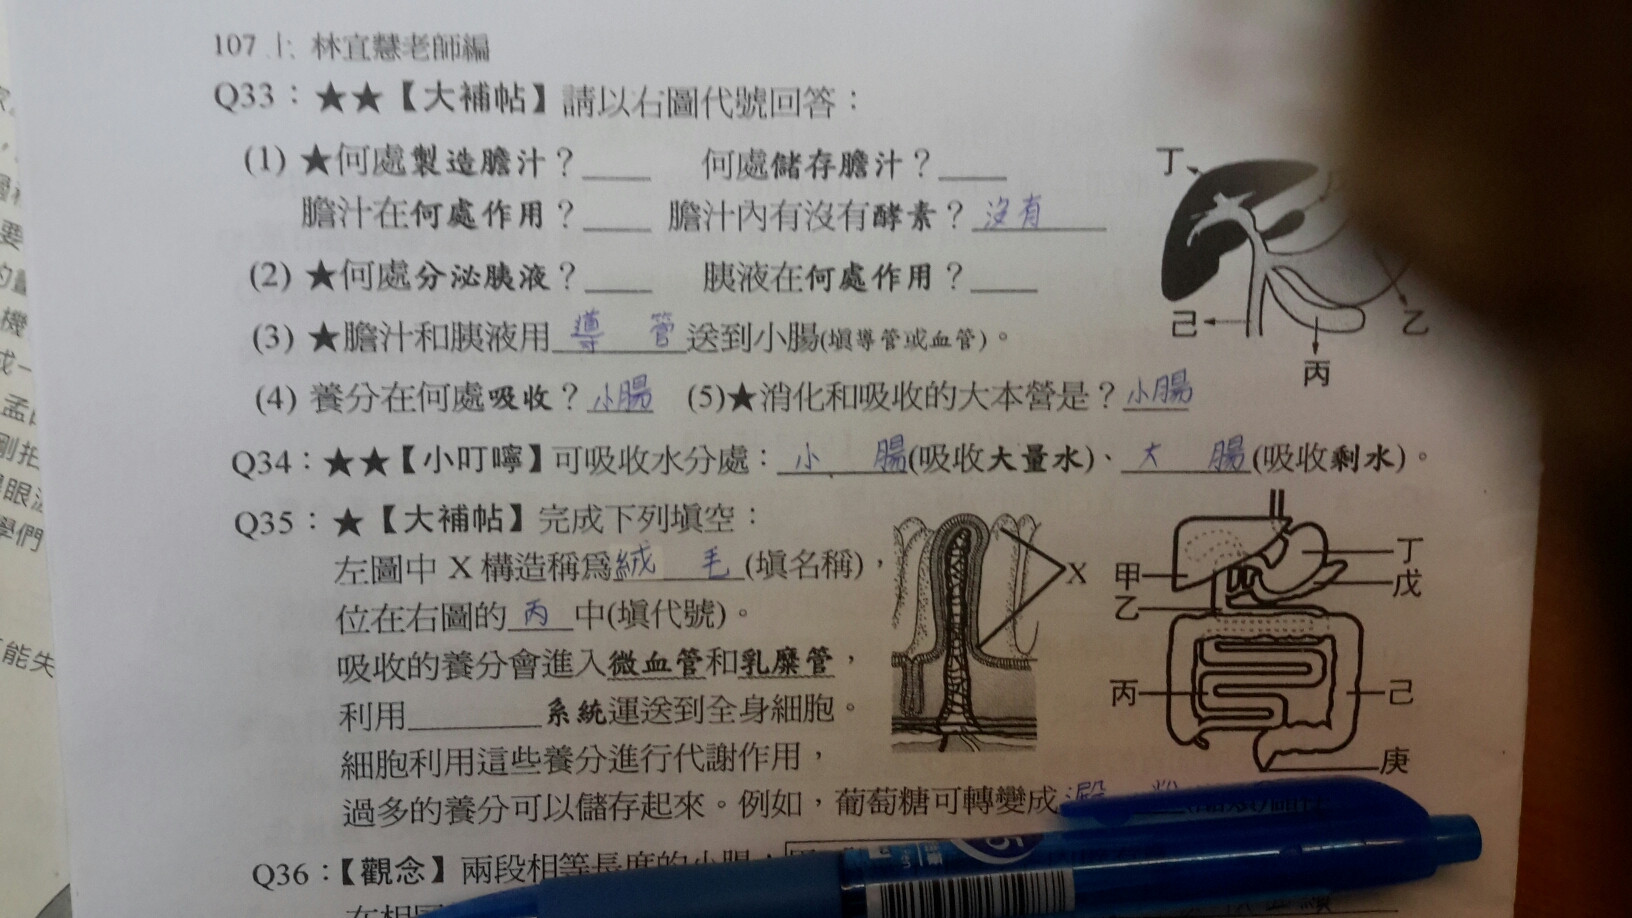 107上 林宜慧老師編
Q33：★★【大補帖】請以右圖代號回答：
(1) ★何處製造膽汁？____ 何處儲存膽汁？____
膽汁在何處作用？____ 膽汁內有沒有酵素？沒有
(2) ★何處分泌胰液？____ 胰液在何處作用？____
(3) ★膽汁和胰液用導 管送到小腸(填導管或血管)。
(4) 養分在何處吸收？小腸 (5)★消化和吸收的大本營是？小腸
丁
己
乙
丙
Q34：★★【小叮嚀】可吸收水分處：小 腸(吸收大量水)、大 腸(吸收剩水)。
Q35：★【大補帖】完成下列填空：
左圖中 X 構造稱為絨 毛(填名稱)，
位在右圖的丙中(填代號)。
吸收的養分會進入微血管和乳糜管，
利用________系統運送到全身細胞。
細胞利用這些養分進行代謝作用，
過多的養分可以儲存起來。例如，葡萄糖可轉變成澱 粉
X
甲
乙
丙
丁
戊
己
庚
Q36：【觀念】兩段相等長度的小腸，